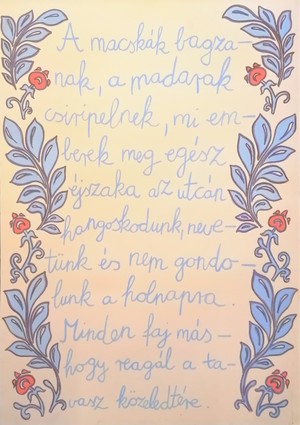 A macskák bagza-
nak, a madarak
csiripelnek, mi em-
berek meg egész
éjszaka az utcán
hangoskodunk, neve-
tünk és nem gondo-
lunk a holnapra.
Minden faj más-
hogy reagál a ta-
vasz közeledtére.